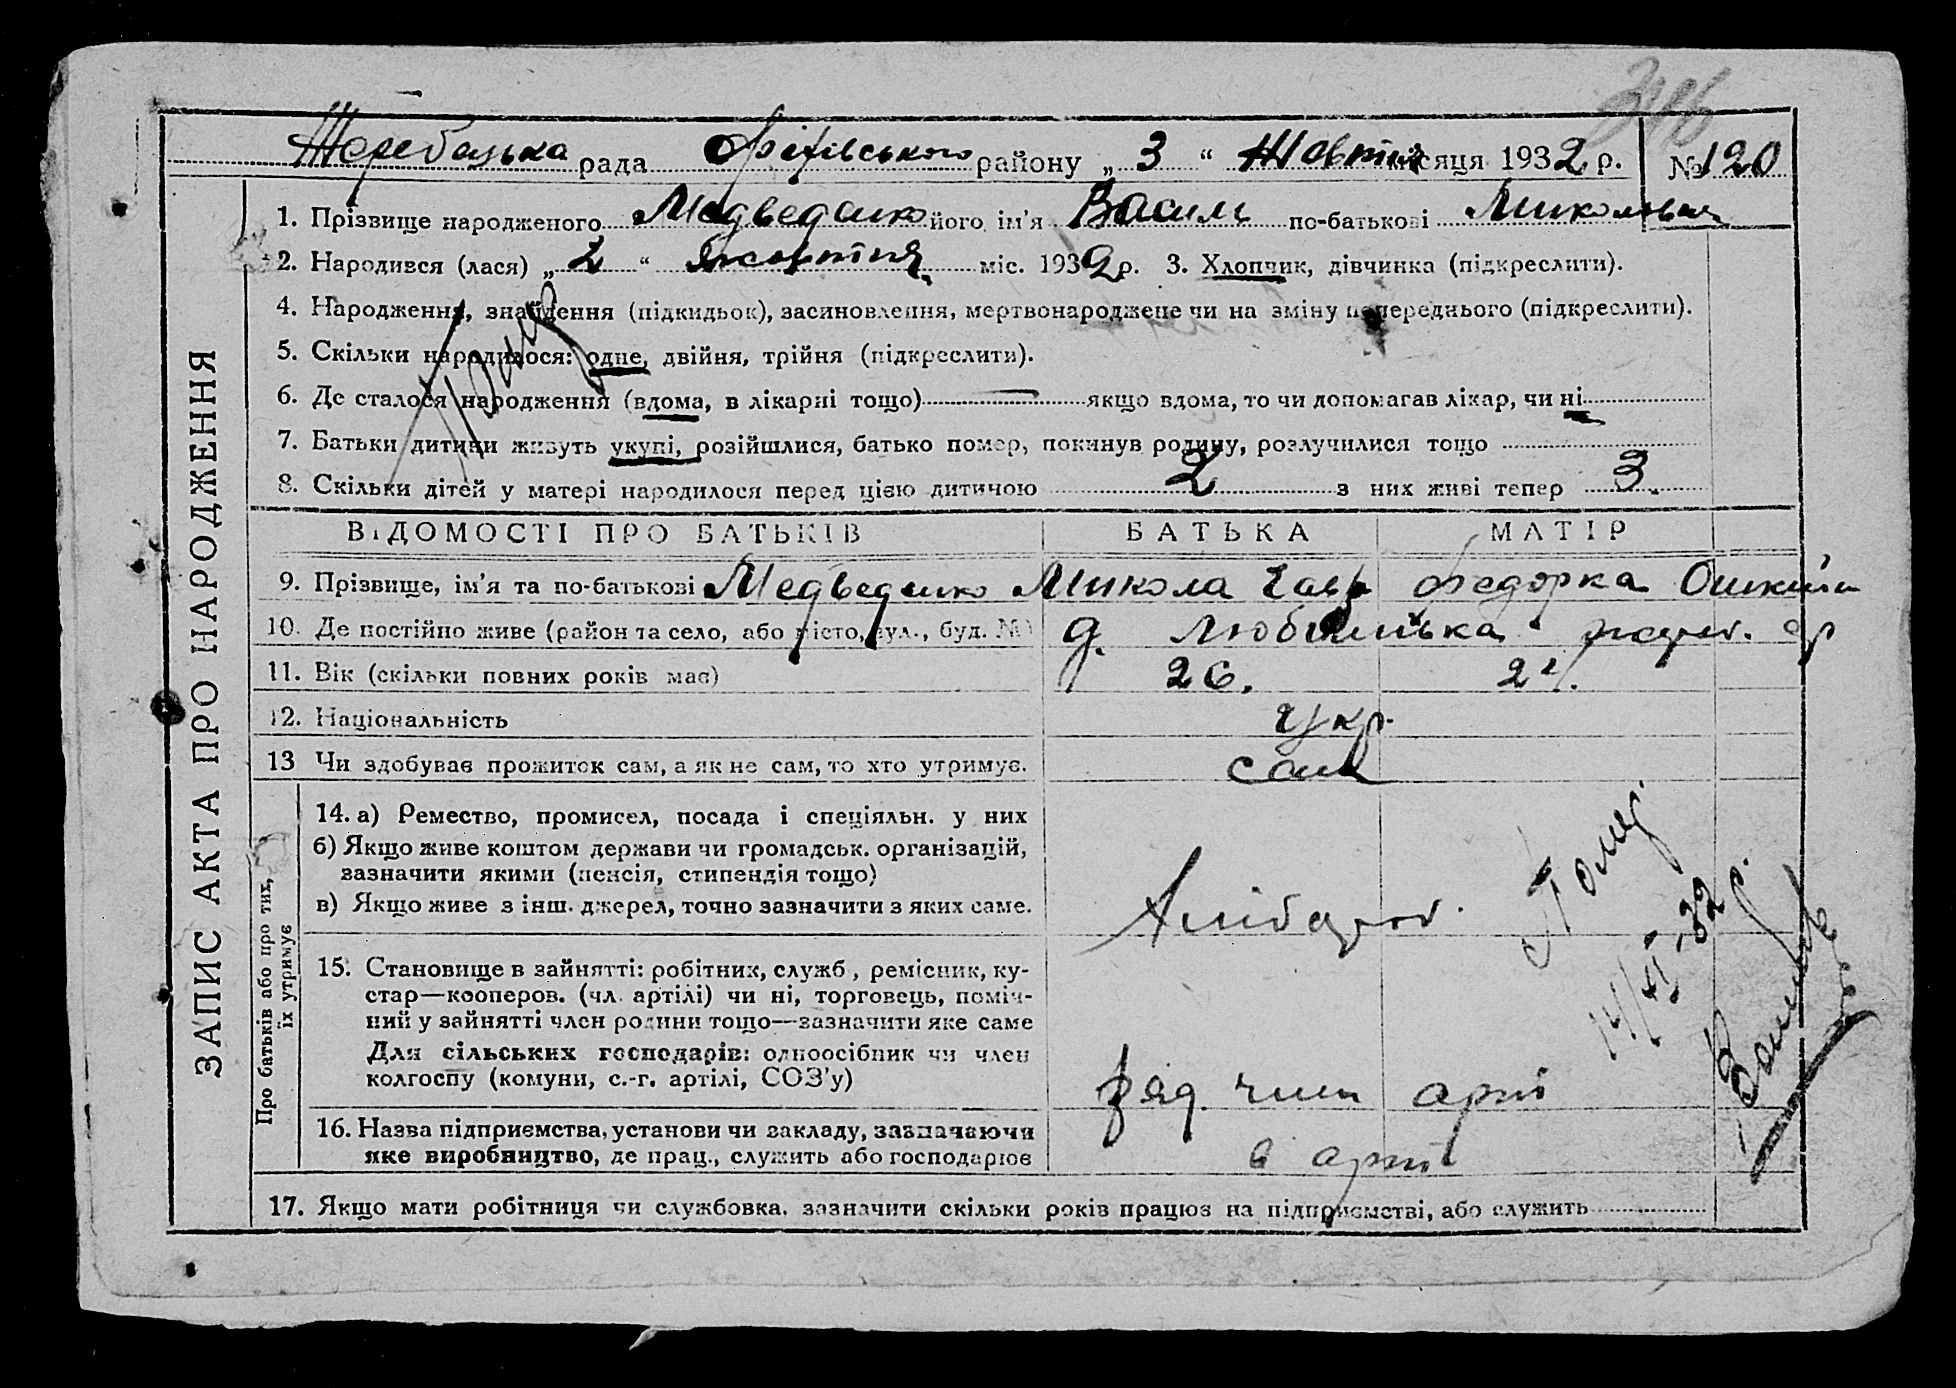 346
Жеребецька рада Оріхівського району „ 3 “ Жовтня місяця 1932 р. № 120
ЗАПИС АКТА ПРО НАРОДЖЕННЯ
1. Прізвище народженого Медведенко його ім'я Василь по-батькові Миколович
2. Народився (лася) „ 2 “ жовтня міс. 1932 р. 3. Хлопчик, дівчинка (підкреслити).
4. Народження, знайдення (підкидьок), засиновлення, мертвонароджене чи на зміну попереднього (підкреслити).
5. Скільки народилося: одне, двійня, трійня (підкреслити).
6. Де сталося народження (вдома, в лікарні тощо) — якщо вдома, то чи допомагав лікар, чи ні
7. Батьки дитини живуть укупі, розійшлися, батько помер, покинув родину, розлучилися тощо
8. Скільки дітей у матері народилося перед цією дитиною 2 з них живі тепер 3.
ВІДОМОСТІ ПРО БАТЬКІВ БАТЬКА МАТІР
9. Прізвище, ім'я та по-батькові Медведенко Микола Федорка
10. Де постійно живе (район та село, або місто, вул., буд. №) д. Любицька
11. Вік (скільки повних років має) 26. 24.
12. Національність укр.
13 Чи здобуває прожиток сам, а як не сам, то хто утримує. сам
Про батьків або про тих, їх утримує
14. а) Ремество, промисел, посада і спеціяльн. у них
б) Якщо живе коштом держави чи громадськ. організацій,
зазначити якими (пенсія, стипендія тощо)
в) Якщо живе з інш. джерел, точно зазначити з яких саме.
Хлібороб.
15. Становище в зайнятті: робітник, служб, ремісник, ку-
стар—кооперов. (чл. артілі) чи ні, торговець, поміч-
ний у зайнятті член родини тощо—зазначити яке саме
Для сільських господарів: одноосібник чи член
колгоспу (комуни, с.-г. артілі, СОЗ'у)
ряд. член арті
16. Назва підприємства, установи чи закладу, зазначаючи
яке виробництво, де прац., служить або господарює
в арті
17. Якщо мати робітниця чи службовка, зазначити скільки років працює на підприємстві, або служить
Помер
Помер.
14/XI-32 р.